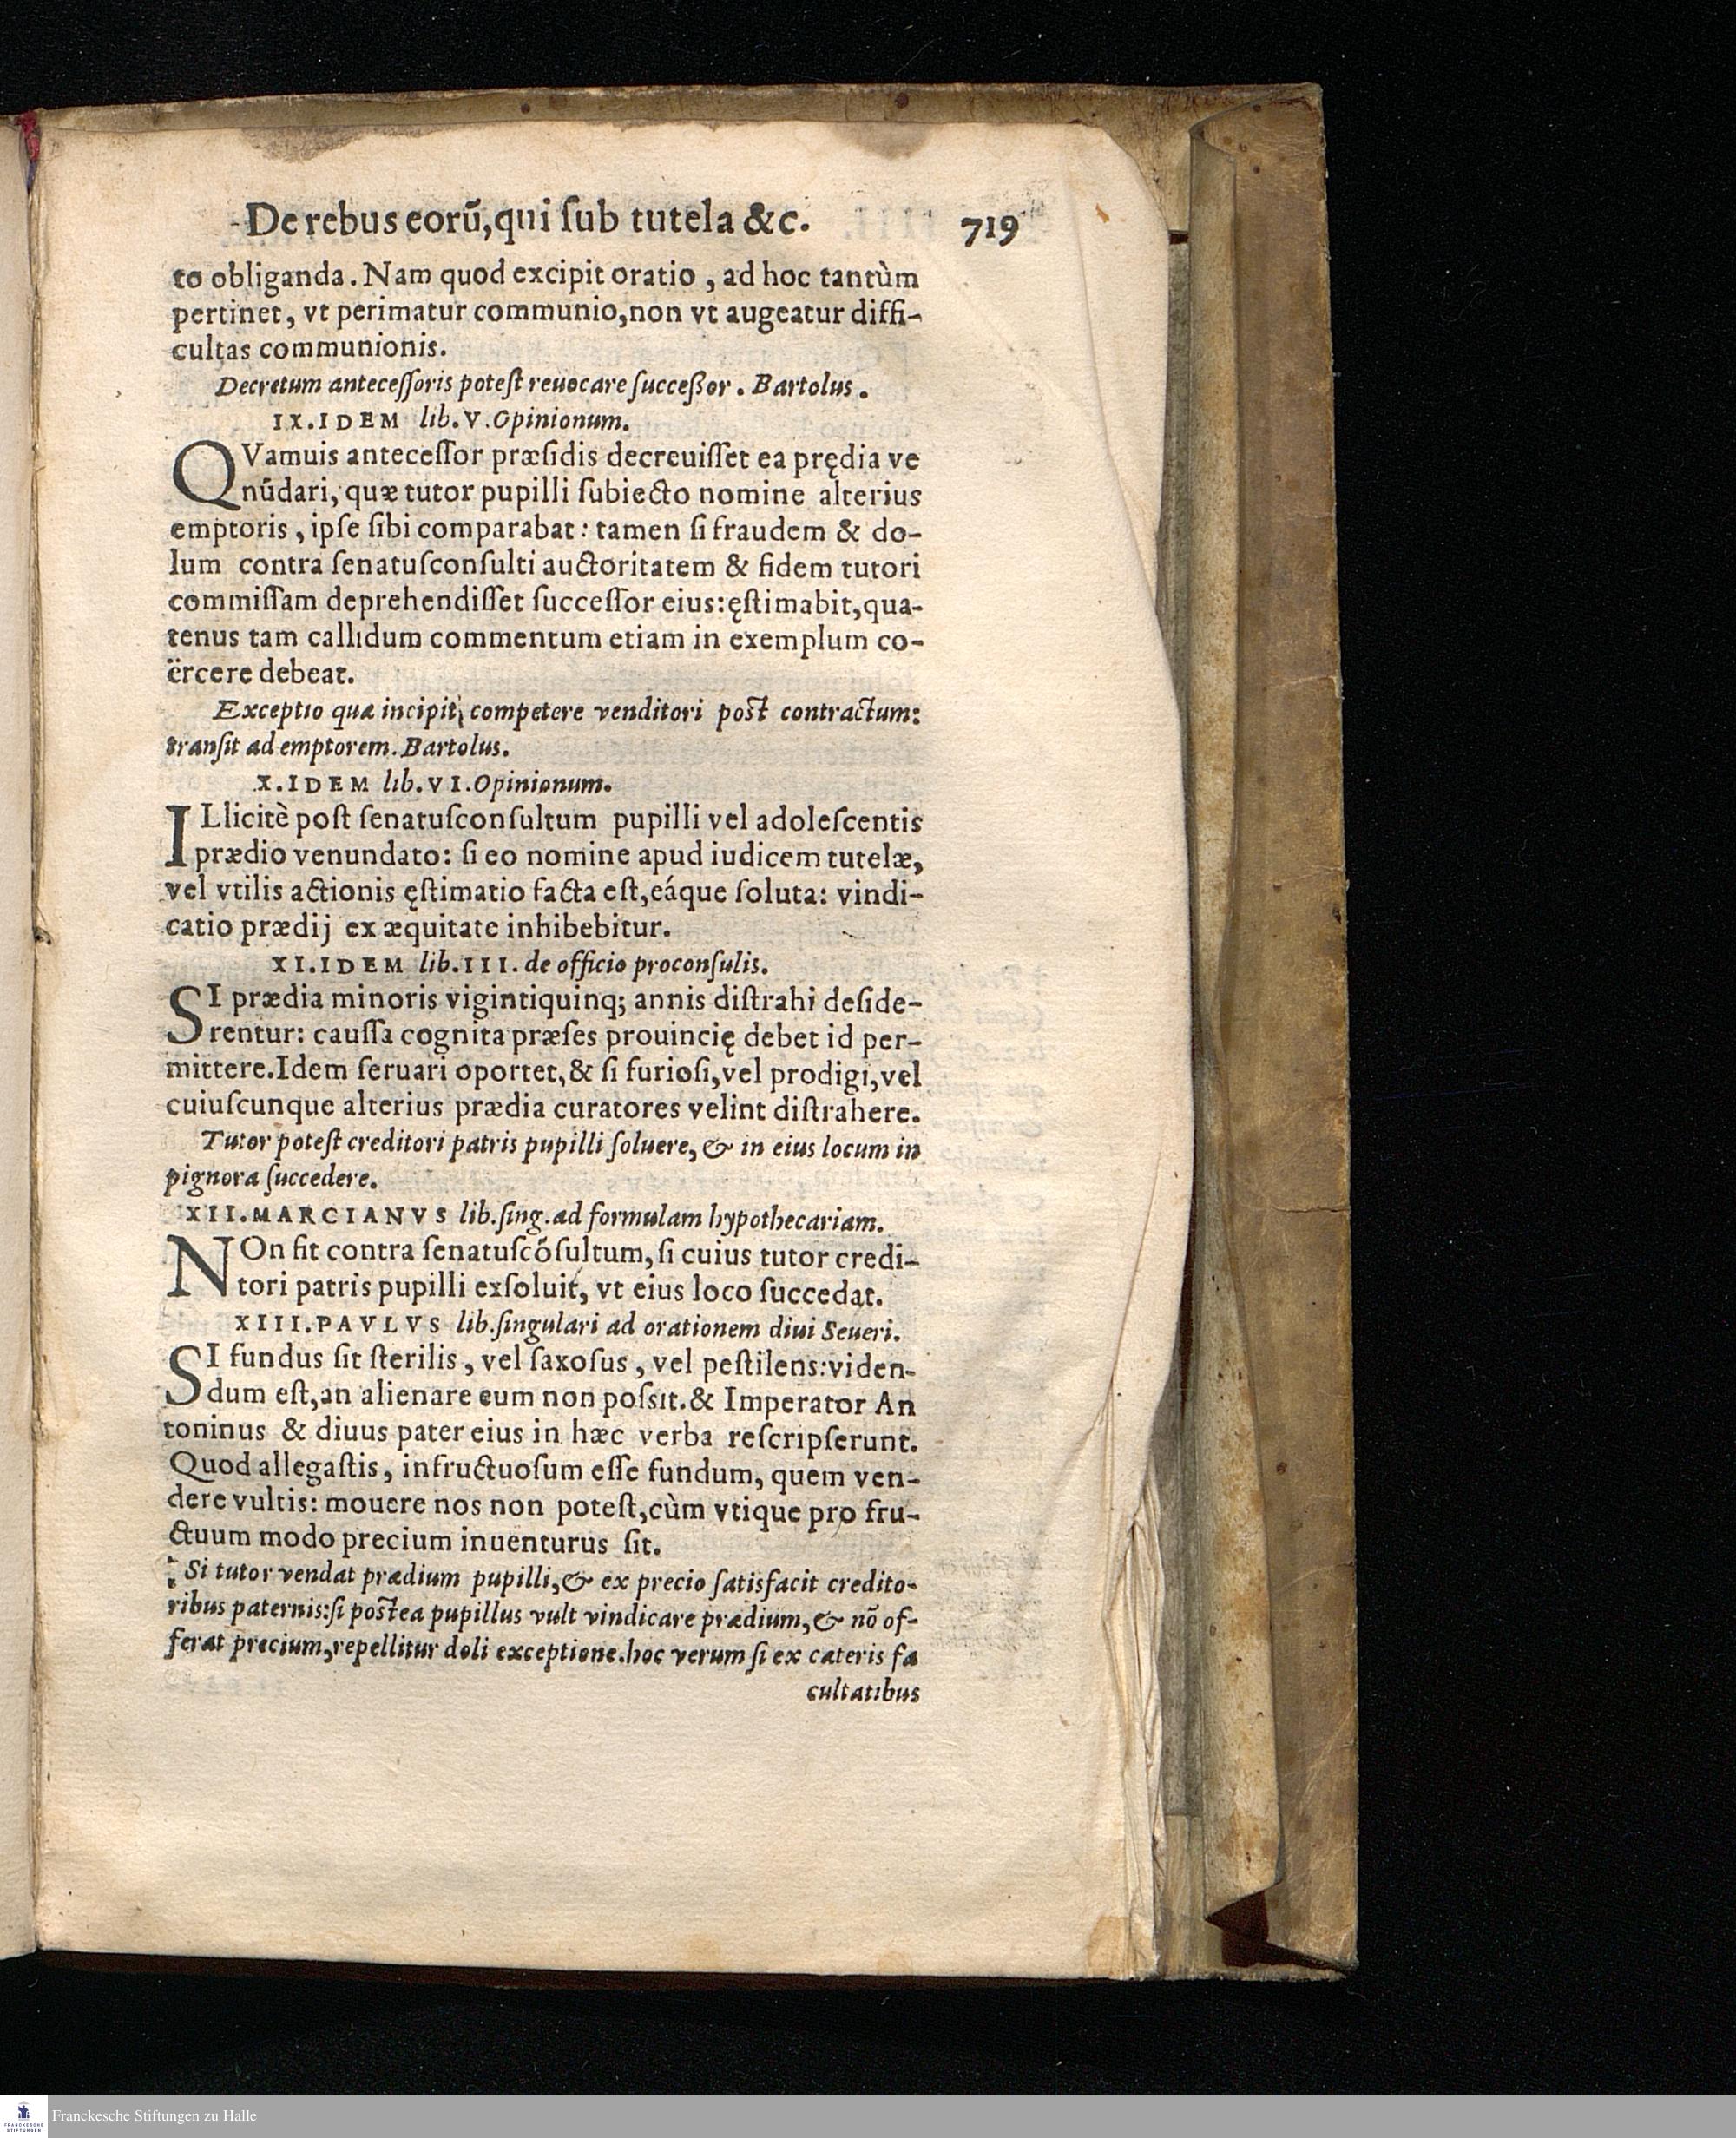 De rebus eorū,qui ſub tutela &c. 719
to obliganda. Nam quod excipit oratio , ad hoc tantùm
pertinet, vt perimatur communio,non vt augeatur diffi-
cultas communionis.
Decretum anteceſſoris poteſt reuocare ſucceßor. Bartolus.
IX. IDEM lib. V. Opinionum.
QVamuis anteceſſor præſidis decreuiſſet ea prędia ve
nūdari, quæ tutor pupilli ſubiecto nomine alterius
emptoris , ipſe ſibi comparabat: tamen ſi fraudem & do-
lum contra ſenatuſconſulti auctoritatem & fidem tutori
commiſſam deprehendiſſet ſucceſſor eius:ęſtimabit,qua-
tenus tam callidum commentum etiam in exemplum co-
ërcere debeat.
Exceptio quæ incipit competere venditori poſt contractum:
tranſit ad emptorem. Bartolus.
X. IDEM lib. VI. Opinionum.
ILlicitè poſt ſenatuſconſultum pupilli vel adoleſcentis
prædio venundato: ſi eo nomine apud iudicem tutelæ,
vel vtilis actionis ęſtimatio facta eſt,eáque ſoluta: vindi-
catio prædij ex æquitate inhibebitur.
XI. IDEM lib. III. de officio proconſulis.
SI prædia minoris vigintiquinq; annis diſtrahi deſide-
rentur: cauſſa cognita præſes prouincię debet id per-
mittere. Idem ſeruari oportet,& ſi furioſi,vel prodigi,vel
cuiuſcunque alterius prædia curatores velint diſtrahere.
Tutor poteſt creditori patris pupilli ſoluere, & in eius locum in
pignora ſuccedere.
XII. MARCIANVS lib. ſing. ad formulam hypothecariam.
NOn fit contra ſenatuſcōſultum, ſi cuius tutor credi-
tori patris pupilli exſoluit, vt eius loco ſuccedat.
XIII. PAVLVS lib. ſingulari ad orationem diui Seueri.
SI fundus ſit ſterilis , vel ſaxoſus , vel peſtilens:viden-
dum eſt,an alienare eum non poſsit.& Imperator An
toninus & diuus pater eius in hæc verba reſcripſerunt.
Quod allegaſtis, infructuoſum eſſe fundum, quem ven-
dere vultis: mouere nos non poteſt,cùm vtique pro fru-
ctuum modo precium inuenturus ſit.
Si tutor vendat prædium pupilli,& ex precio ſatisfacit credito-
ribus paternis:ſi poſtea pupillus vult vindicare prædium,& nō of-
ferat precium,repellitur doli exceptione.hoc verum ſi ex cæteris fa
cultatibus
Franckesche Stiftungen zu Halle
FRANCKESCHE
STIFTUNGEN